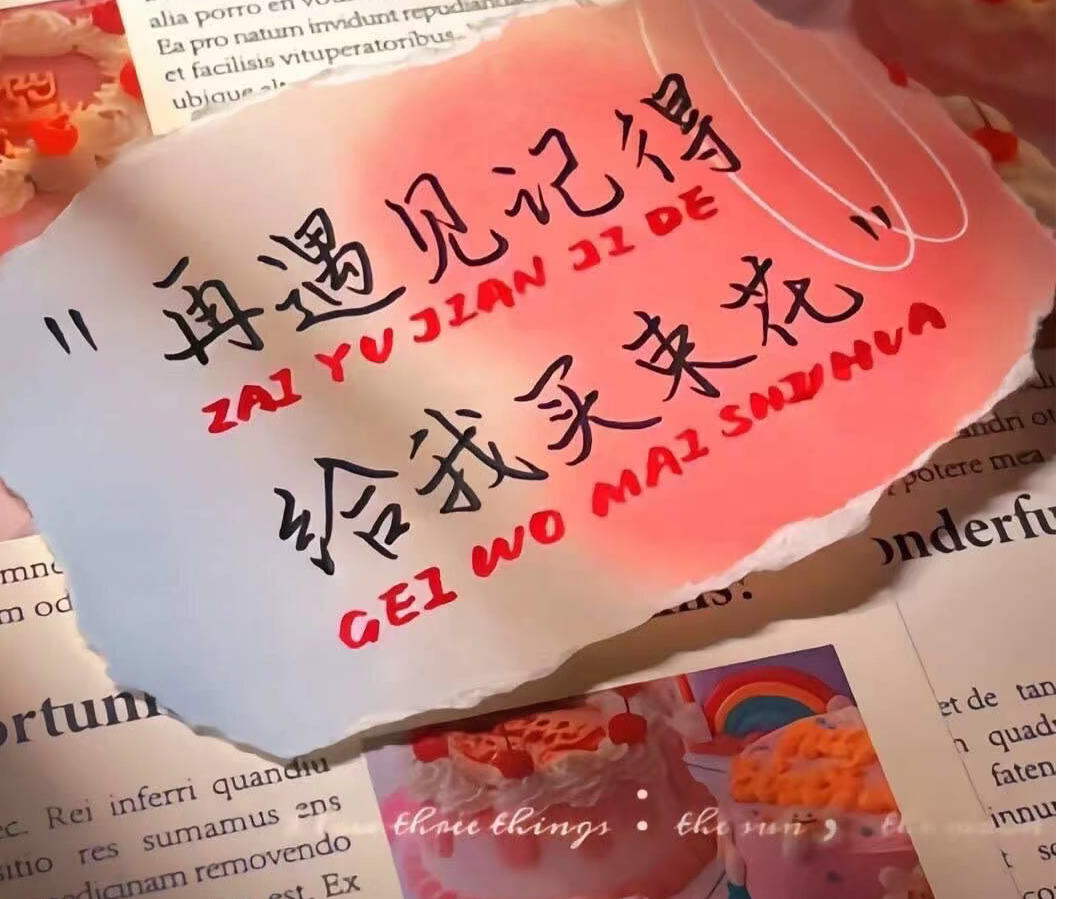 alia porro en
Ea pro natum invidunt repudiandae
et facilisis vituperatoribus.
ubique
"再遇见记得
ZAI YU JIAN JI DE
给我买束花"
GEI WO MAI SHU HUA
andri
potere mea
onderfu
m od
ortuni
ec. Rei inferri quandiu
sitio res sumamus ens
edicinam removendo
est. Ex
three things : the sun ,
et de tan
quad
faten
innu